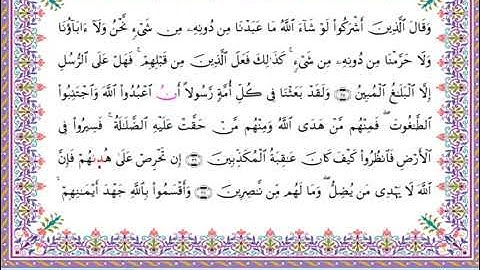 وَقَالَ ٱلَّذِينَ أَشْرَكُوا۟ لَوْ شَآءَ ٱللَّهُ مَا عَبَدْنَا مِن دُونِهِۦ مِن شَىْءٍ نَّحْنُ وَلَآ ءَابَآؤُنَا
وَلَا حَرَّمْنَا مِن دُونِهِۦ مِن شَىْءٍ ۚ كَذَٰلِكَ فَعَلَ ٱلَّذِينَ مِن قَبْلِهِمْ ۚ فَهَلْ عَلَى ٱلرُّسُلِ
إِلَّا ٱلْبَلَـٰغُ ٱلْمُبِينُ ۝٣٥ وَلَقَدْ بَعَثْنَا فِى كُلِّ أُمَّةٍ رَّسُولًا أَنِ ٱعْبُدُوا۟ ٱللَّهَ وَٱجْتَنِبُوا۟
ٱلطَّـٰغُوتَ ۖ فَمِنْهُم مَّنْ هَدَى ٱللَّهُ وَمِنْهُم مَّنْ حَقَّتْ عَلَيْهِ ٱلضَّلَـٰلَةُ ۚ فَسِيرُوا۟ فِى
ٱلْأَرْضِ فَٱنظُرُوا۟ كَيْفَ كَانَ عَـٰقِبَةُ ٱلْمُكَذِّبِينَ ۝٣٦ إِن تَحْرِصْ عَلَىٰ هُدَىٰهُمْ فَإِنَّ
ٱللَّهَ لَا يَهْدِى مَن يُضِلُّ ۖ وَمَا لَهُم مِّن نَّـٰصِرِينَ ۝٣٧ وَأَقْسَمُوا۟ بِٱللَّهِ جَهْدَ أَيْمَـٰنِهِمْ ۙ